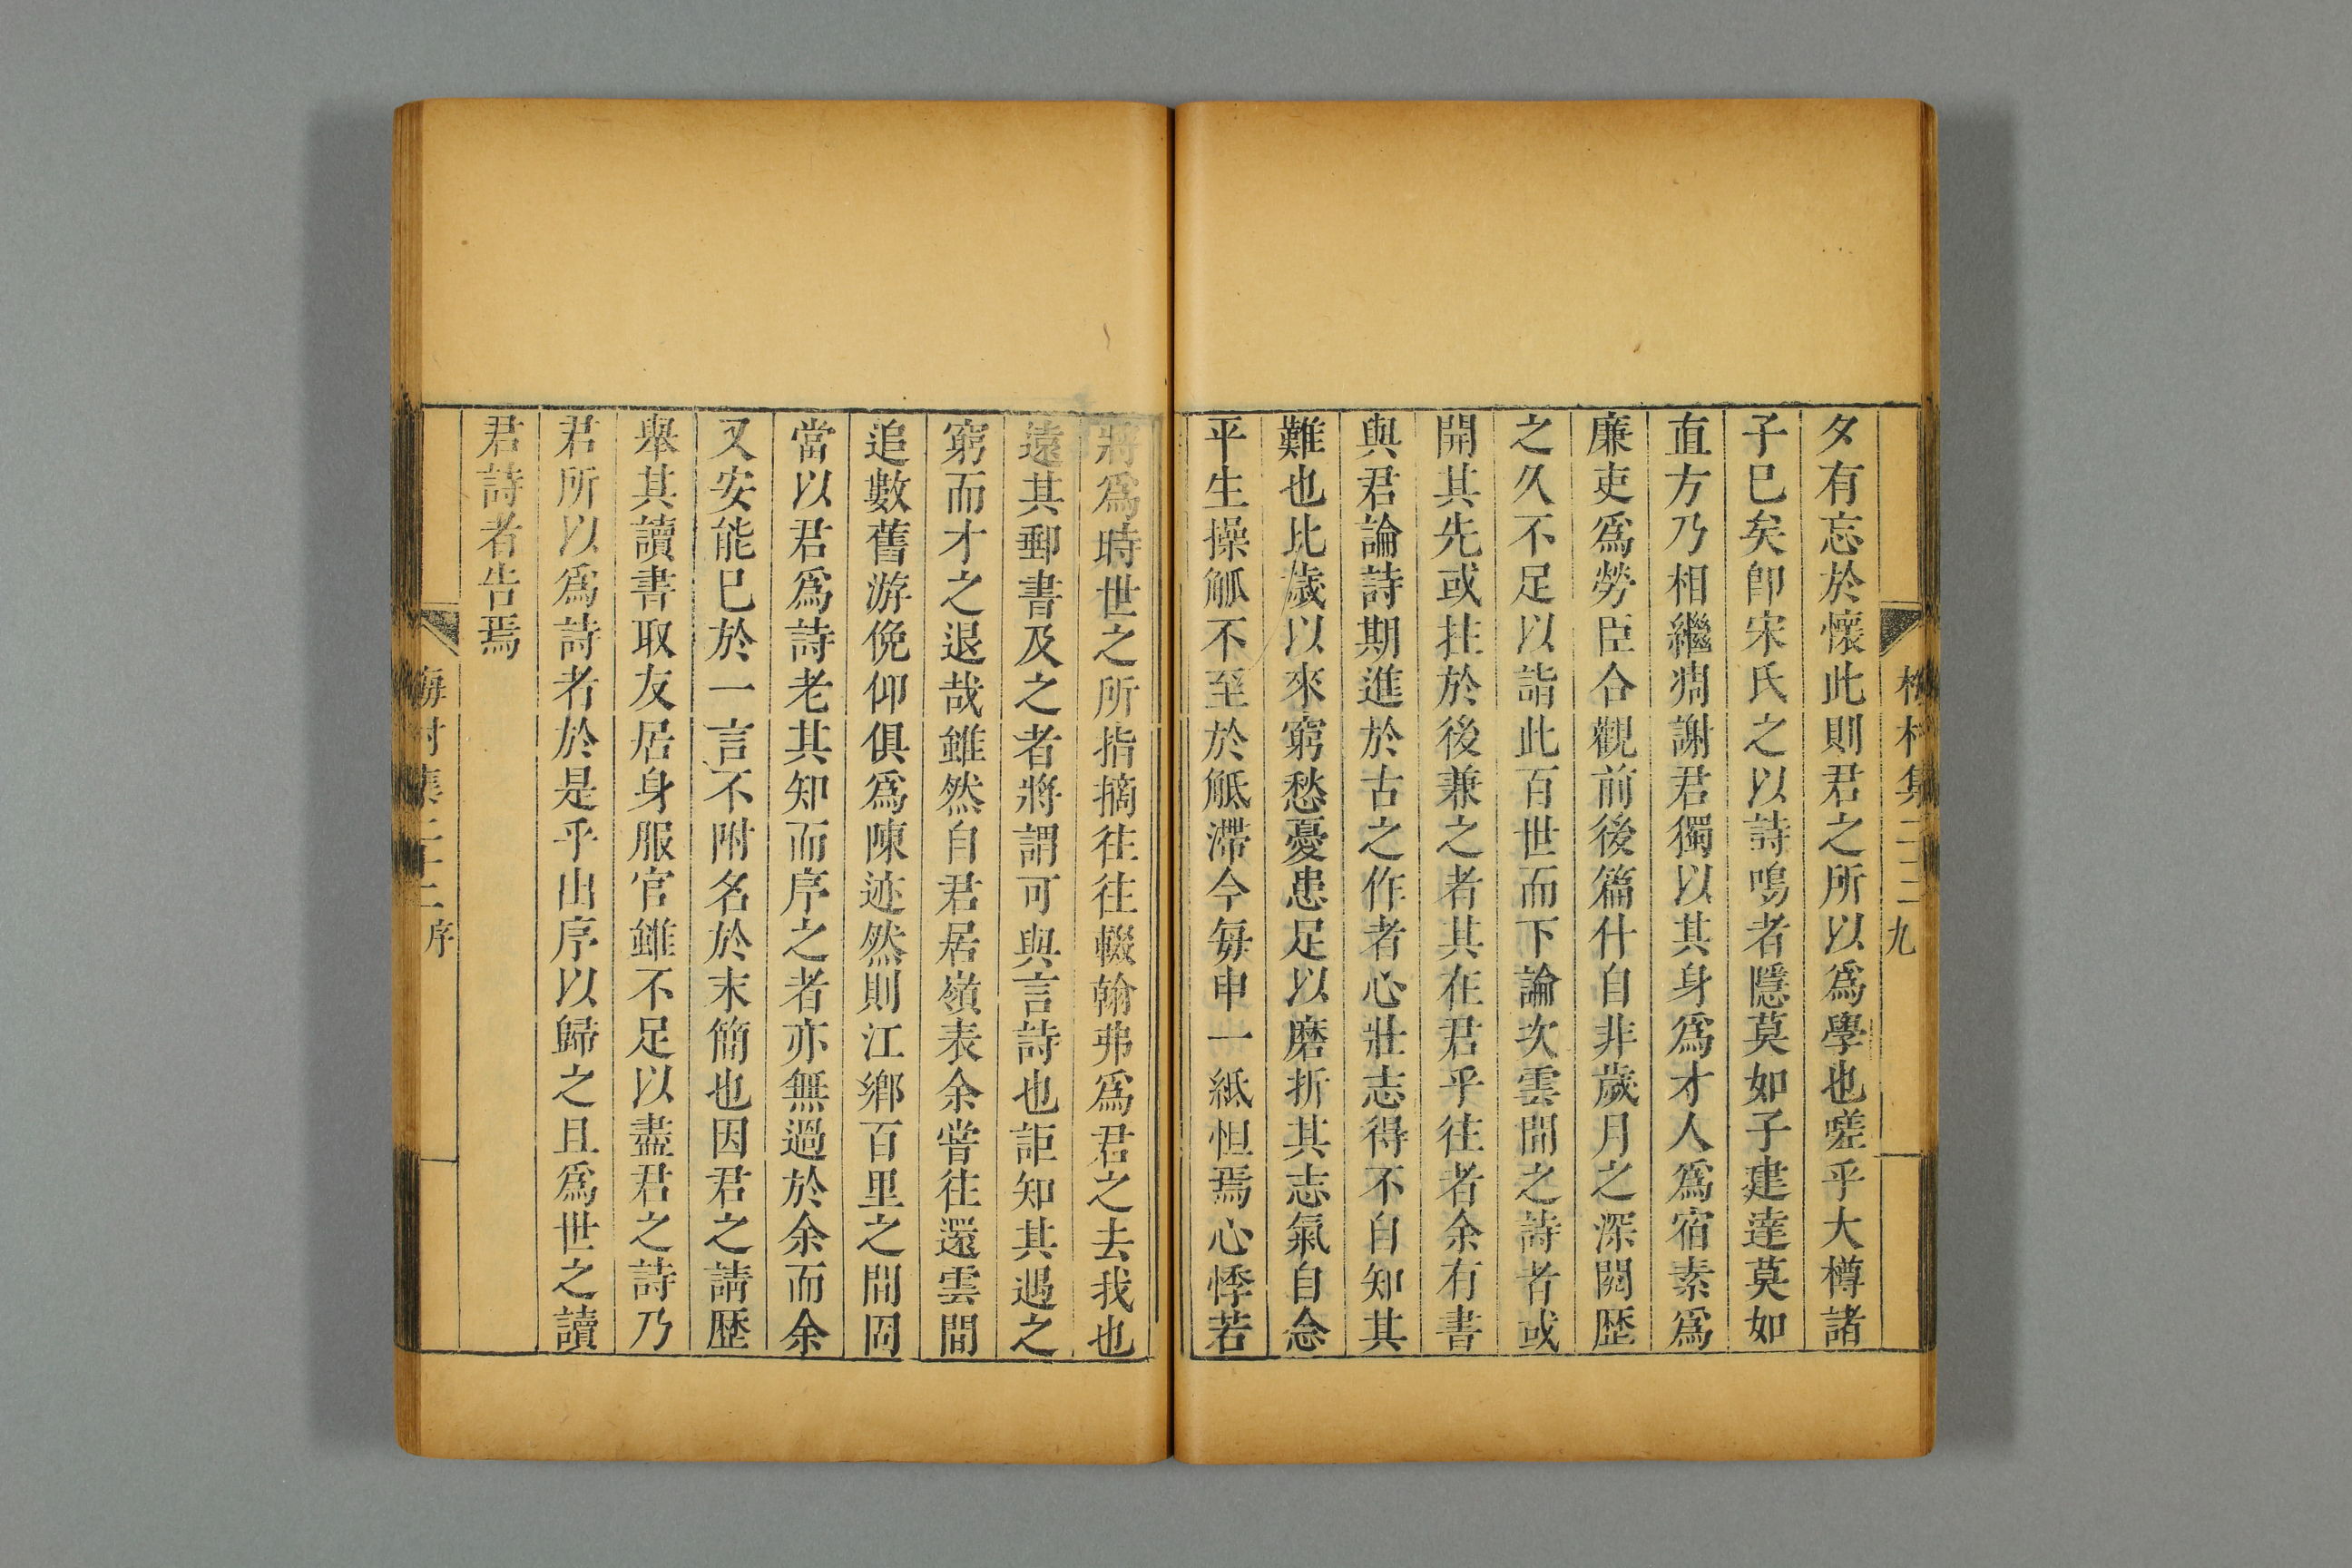 夕有忘於懷此則君之所以爲學也嗟乎大樽諸
子已矣卽宋氏之以詩鳴者隱莫如子建達莫如
直方乃相繼凋謝君獨以其身爲才人爲宿素爲
廉吏爲勞臣合觀前後篇什自非歲月之深閱歷
之久不足以詣此百世而下論次雲間之詩者或
開其先或拄於後兼之者其在君乎往者余有書
與君論詩期進於古之作者心壯志得不自知其
難也比歲以來窮愁憂患足以磨折其志氣自念
平生操觚不至於觝滯今每申一紙怛焉心悸若
將爲時世之所指摘往往輟翰弗爲君之去我也
遠其郵書及之者將謂可與言詩也詎知其遇之
窮而才之退哉雖然自君居嶺表余嘗往還雲間
追數舊游俛仰俱爲陳迹然則江鄉百里之間罔
當以君爲詩老其知而序之者亦無過於余而余
又安能已於一言不附名於末簡也因君之請歷
舉其讀書取友居身服官雖不足以盡君之詩乃
君所以爲詩者於是乎出序以歸之且爲世之讀
君詩者告焉
梅村集二十二 序
梅村集二十二 九